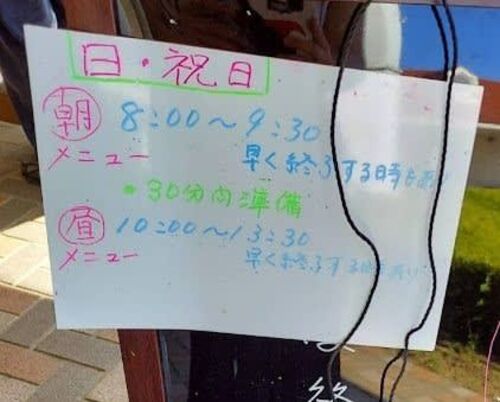 日・祝日
朝 8:00〜9:30
メニュー 早く終了する時も有り
・30分内準備
昼 10:00〜13:30
メニュー 早く終了する時も有り
終